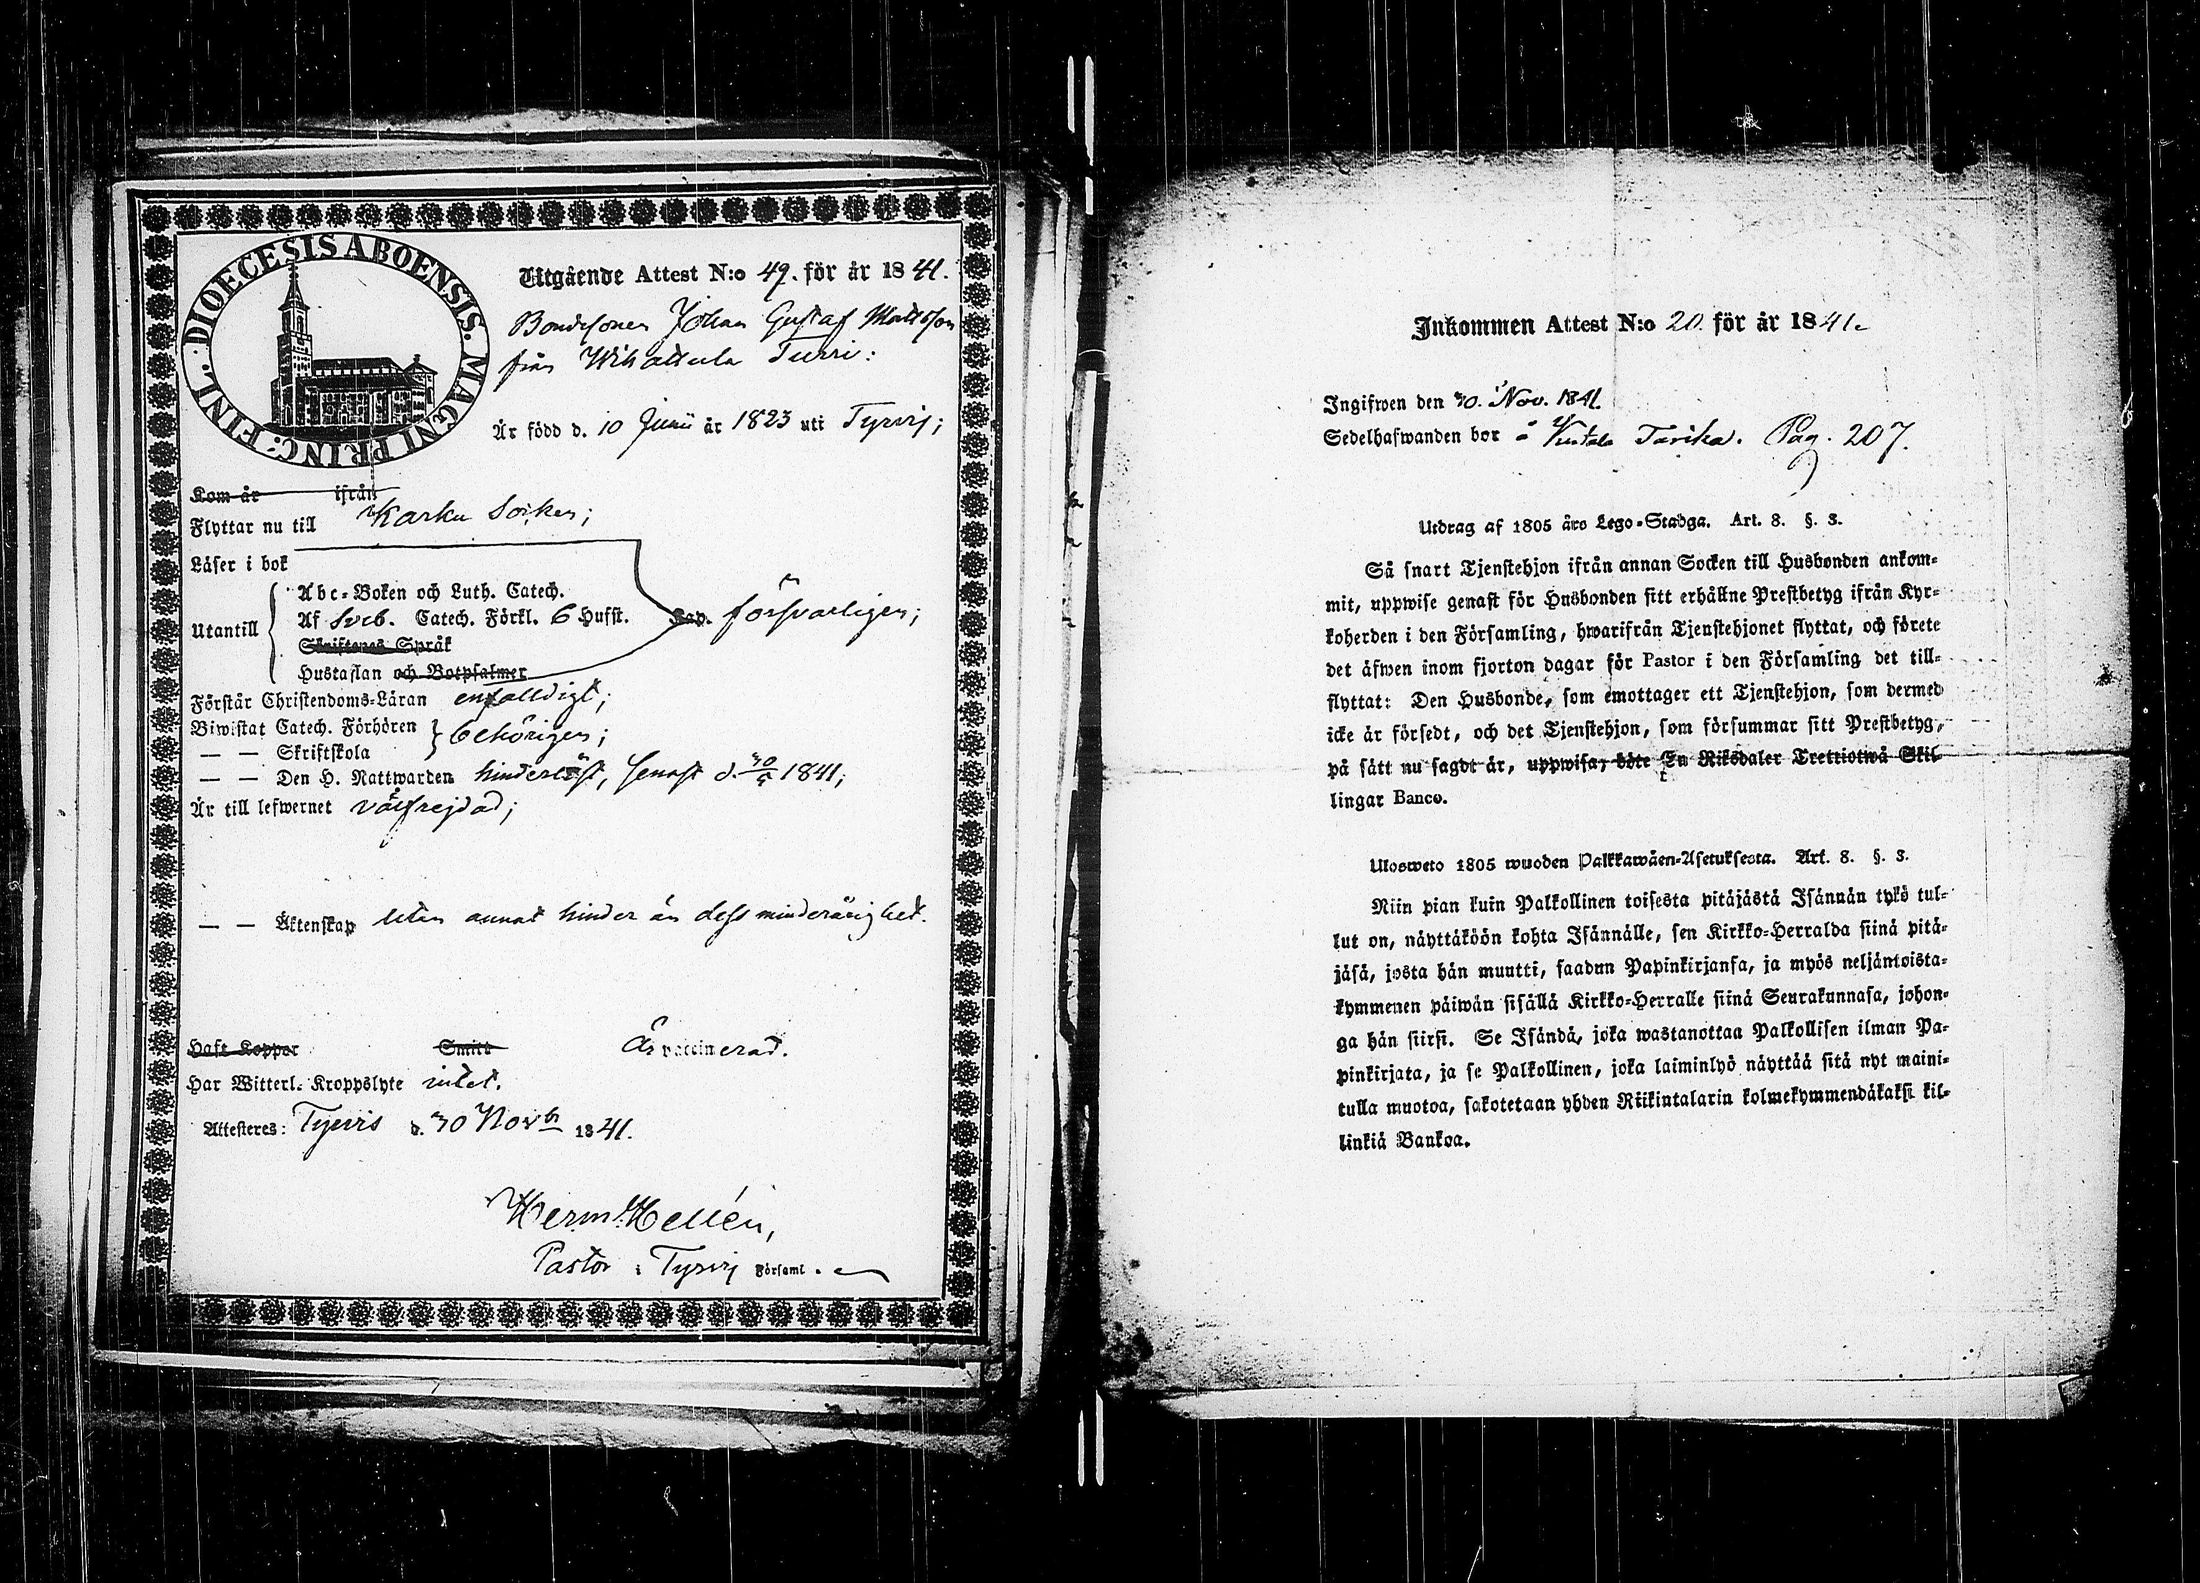 DIOECESIS ABOENSIS. MAGNI PRINC: FINL.:
Utgående Attest N:o 49. för år 1841.
Bondesonen Johan Gustaf Mattsson
från Wihattula Turri:
Är född d. 10 Junii år 1823 uti Tyrvis;
Kom år ifrån
Flyttar nu till Karku Socken;
Läser i bok
Abc-Boken och Luth. Catech.
Utantill Af Sveb. Catech. Förkl. 6 Hufst. Cap. försvarligen;
Skriftenes Språk
Hustaflan och Botpsalmer
Förstår Christendoms-Läran enfaldigt;
Biwistat Catech. Förhören } behörigen;
— — Skriftskola
— — Den H. Nattwarden hinderlöst, senast d. 1841;
Är till lefwernet välfrejdad;
— — Äktenskap utan annat hinder än dess minderårighet.
Haft Koppor Smitt Är vaccinerad.
Har Witterl. Kroppslyte intet.
Attesteres: Tyrvis d. 30 Novbr 1841.
Herm. Hellén,
Pastor i Tyrvis Församl.
Inkommen Attest N:o 20. för år 1841.
Ingifwen den 30. Nov. 1841.
Sedelhafwanden bor å Tarika. Pag. 207.
Utdrag af 1805 års Lego-Stadga. Art. 8. §. 3.
Så snart Tjenstehjon ifrån annan Socken till Husbonden ankom-
mit, uppwise genast för Husbonden sitt erhållne Prestbetyg ifrån Kyr-
koherden i den Församling, hwarifrån Tjenstehjonet flyttat, och förete
det äfwen inom fjorton dagar för Pastor i den Församling det till-
flyttat: Den Husbonde, som emottager ett Tjenstehjon, som dermed
icke är försedt, och det Tjenstehjon, som försummar sitt Prestbetyg,
på sätt nu sagdt är, uppwisa, böte En Riksdaler Trettiotwå Skil-
lingar Banco.
Ulosweto 1805 wuoden Palkkawäen-Asetuksesta. Art. 8. §. 3.
Niin pian kuin Palkollinen toisesta pitäjästä Isännän tykö tul-
lut on, näyttäköön kohta Isännälle, sen Kirkko-Herralda siinä pitä-
jäsä, josta hän muutti, saadun Papinkirjansa, ja myös neljäntoista-
kymmenen päiwän sisällä Kirkko-Herralle siinä Seurakunnasa, johon-
ga hän siirsi. Se Isändä, joka wastanottaa Palkollisen ilman Pa-
pinkirjata, ja se Palkollinen, joka laiminlyö näyttää sitä nyt maini-
tulla muotoa, sakotetaan yhden Riikintalarin kolmekymmendäkaksi kil-
linkiä Bankoa.